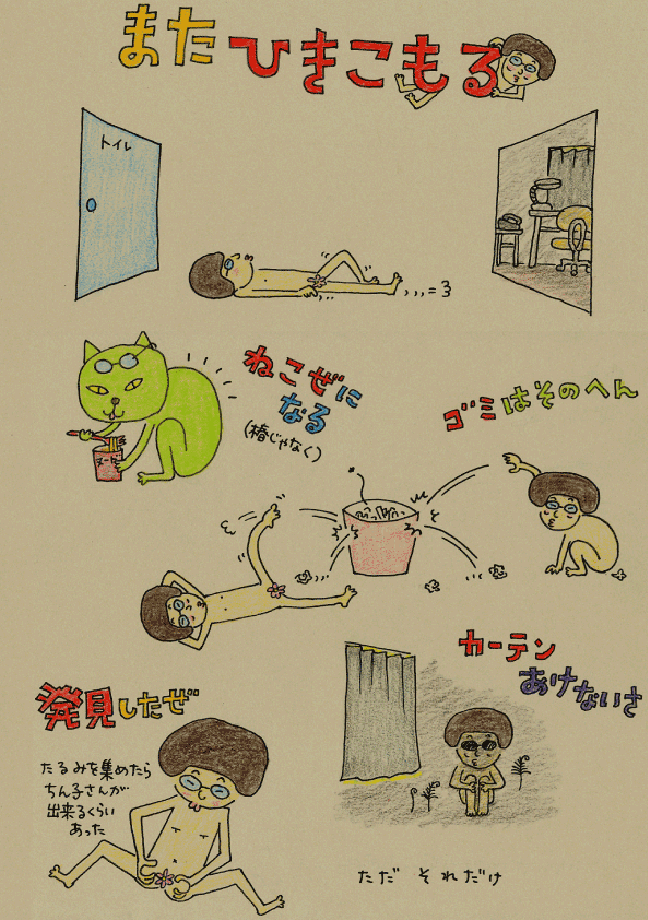 またひきこもる
トイレ
,,,=3
ねこぜに
なる
(椿じゃなく)
ヌード
ゴミはそのへん
カーテン
あけないさ
発見したぜ
たるみを集めたら
ちん子さんが
出来るくらい
あった
ただ それだけ